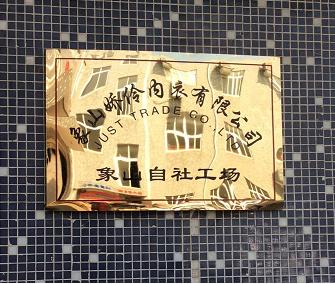 象山娇伶内衣有限公司
JUST TRADE CO.,LTD
象山自社工场